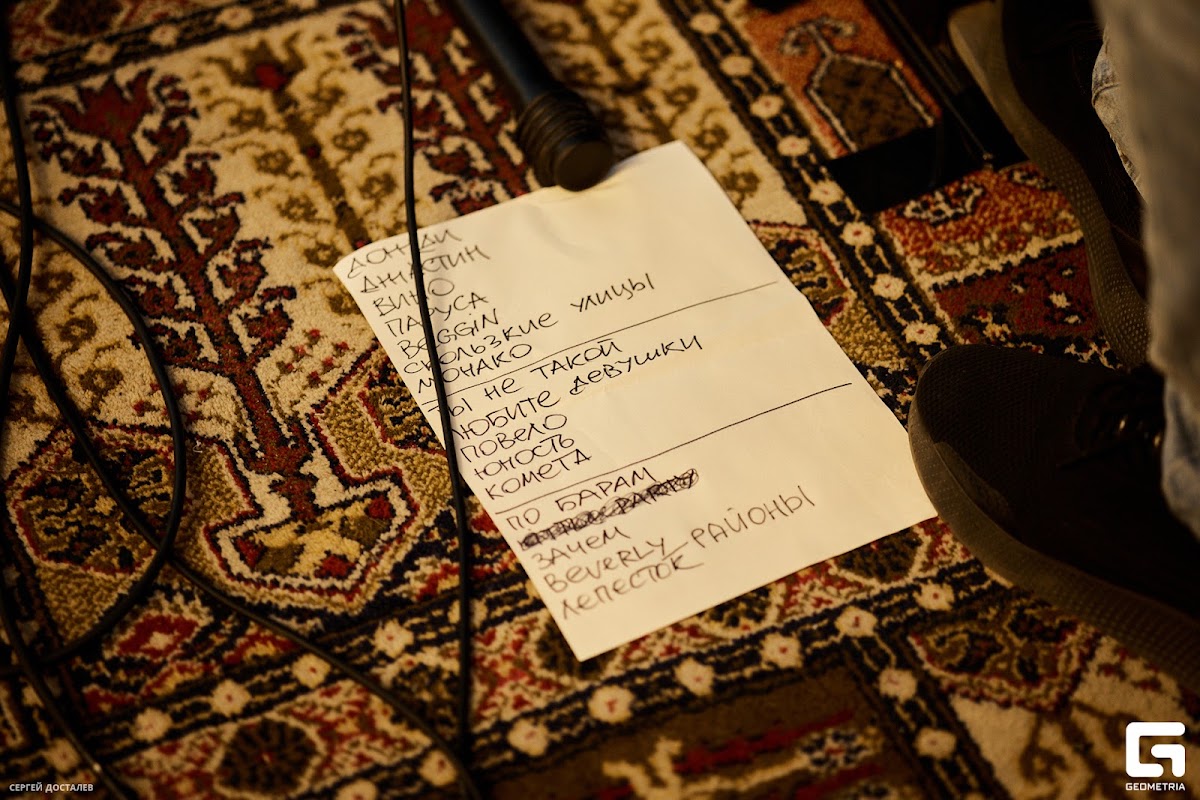 ДОЖДИ
ДЖАСТИН
ВИНО
ПАРУСА
BEGGIN
СКОЛЬЗКИЕ УЛИЦЫ
МОНАКО
ТЫ НЕ ТАКОЙ
ЛЮБИТЕ ДЕВУШКИ
ПОВЕЛО
ЮНОСТЬ
КОМЕТА
ПО БАРАМ
PARTY
ЗАЧЕМ
BEVERLY РАЙОНЫ
ЛЕПЕСТОК
G
GEOMETRIA
СЕРГЕЙ ДОСТАЛЕВ